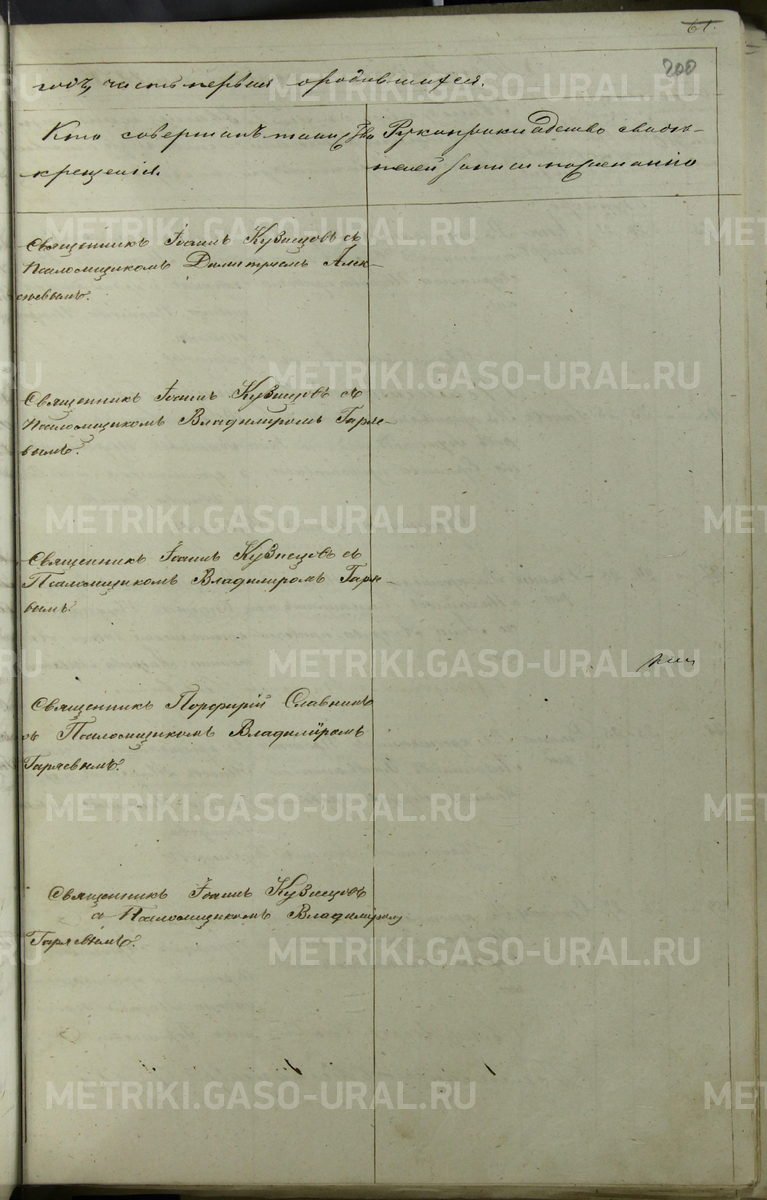 61.
200
годъ, часть первая о родившихся.
Кто совершалъ таинство
крещенія.
Рукоприкладство свидѣ-
телей записи по желанію
Священникъ Іоаннъ Кузнецовъ съ
Псаломщикомъ Димитріемъ Алек-
сѣевымъ.
Священникъ Іоаннъ Кузнецовъ съ
Псаломщикомъ Владиміромъ Гаряе-
вымъ.
Священникъ Іоаннъ Кузнецовъ съ
Псаломщикомъ Владиміромъ Гаряе-
вымъ.
Священникъ Порфирій Славнинъ
съ Псаломщикомъ Владиміромъ
Гаряевымъ.
Священникъ Іоаннъ Кузнецовъ
съ Псаломщикомъ Владиміромъ
Гаряевымъ.
METRIKI.GASO-URAL.RU